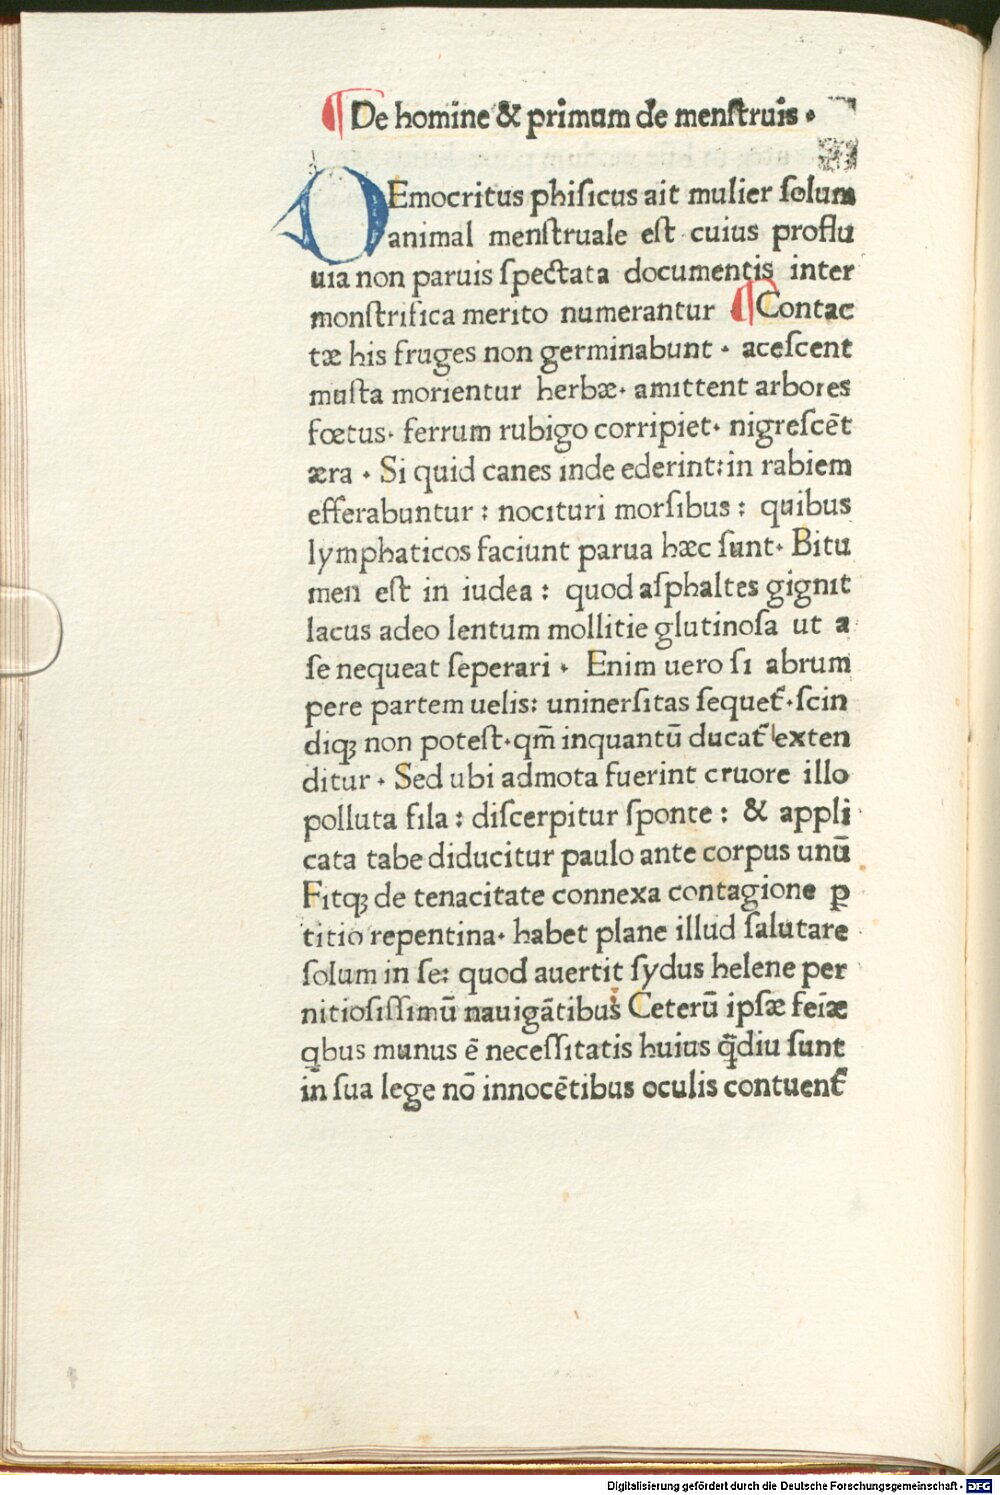 ¶ De homine & primum de menſtruis .
DEmocritus phiſicus ait mulier ſolum
animal menſtruale eſt cuius proflu
uia non paruis ſpectata documentis inter
monſtrifica merito numerantur ¶ Contac
tæ his fruges non germinabunt . aceſcent
muſta morientur herbæ . amittent arbores
fœtus . ferrum rubigo corripiet . nigreſcēt
æra . Si quid canes inde ederint: in rabiem
efferabuntur : nocituri morſibus : quibus
lymphaticos faciunt parua hæc ſunt . Bitu
men eſt in iudea : quod aſphaltes gignit
lacus adeo lentum mollitie glutinoſa ut a
ſe nequeat ſeperari . Enim uero ſi abrum
pere partem uelis: uninerſitas ſequet᷑ . ſcin
diqꝫ non poteſt . qm̄ inquantū ducat᷑ exten
ditur . Sed ubi admota fuerint cruore illo
polluta fila : diſcerpitur ſponte : & appli
cata tabe diducitur paulo ante corpus unū
Fitqꝫ de tenacitate connexa contagione ꝑ
titio repentina . habet plane illud ſalutare
ſolum in ſe: quod auertit ſydus helene per
nitioſiſſimū nauigātibus Ceterū ipſæ feīæ
qbus munus ē neceſſitatis huius q̄diu ſunt
in ſua lege nō innocētibus oculis contuent᷑
Digitalisierung gefördert durch die Deutsche Forschungsgemeinschaft - DFG